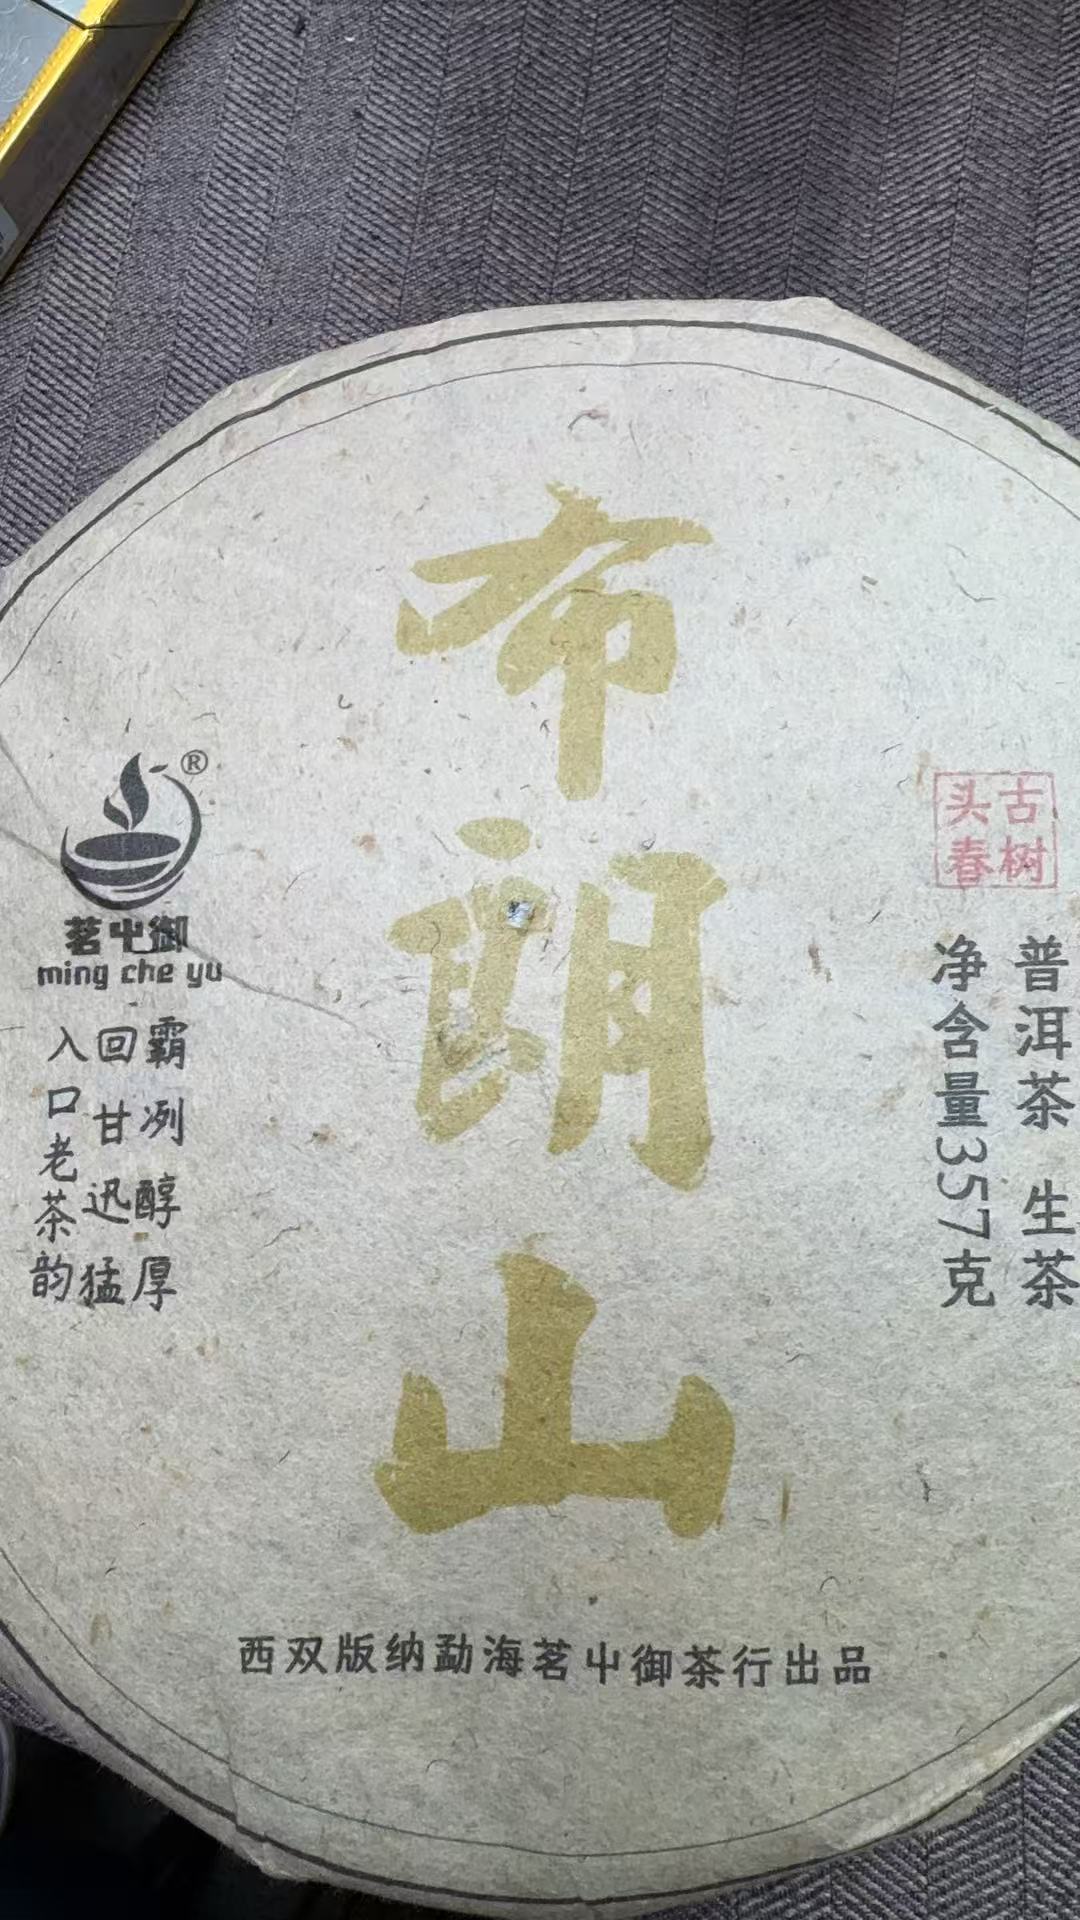 布朗山
®
茗屮御
ming che yu
霸冽醇厚
回甘迅猛
入口老茶韵
古树
头春
普洱茶 生茶
净含量357克
西双版纳勐海茗屮御茶行出品